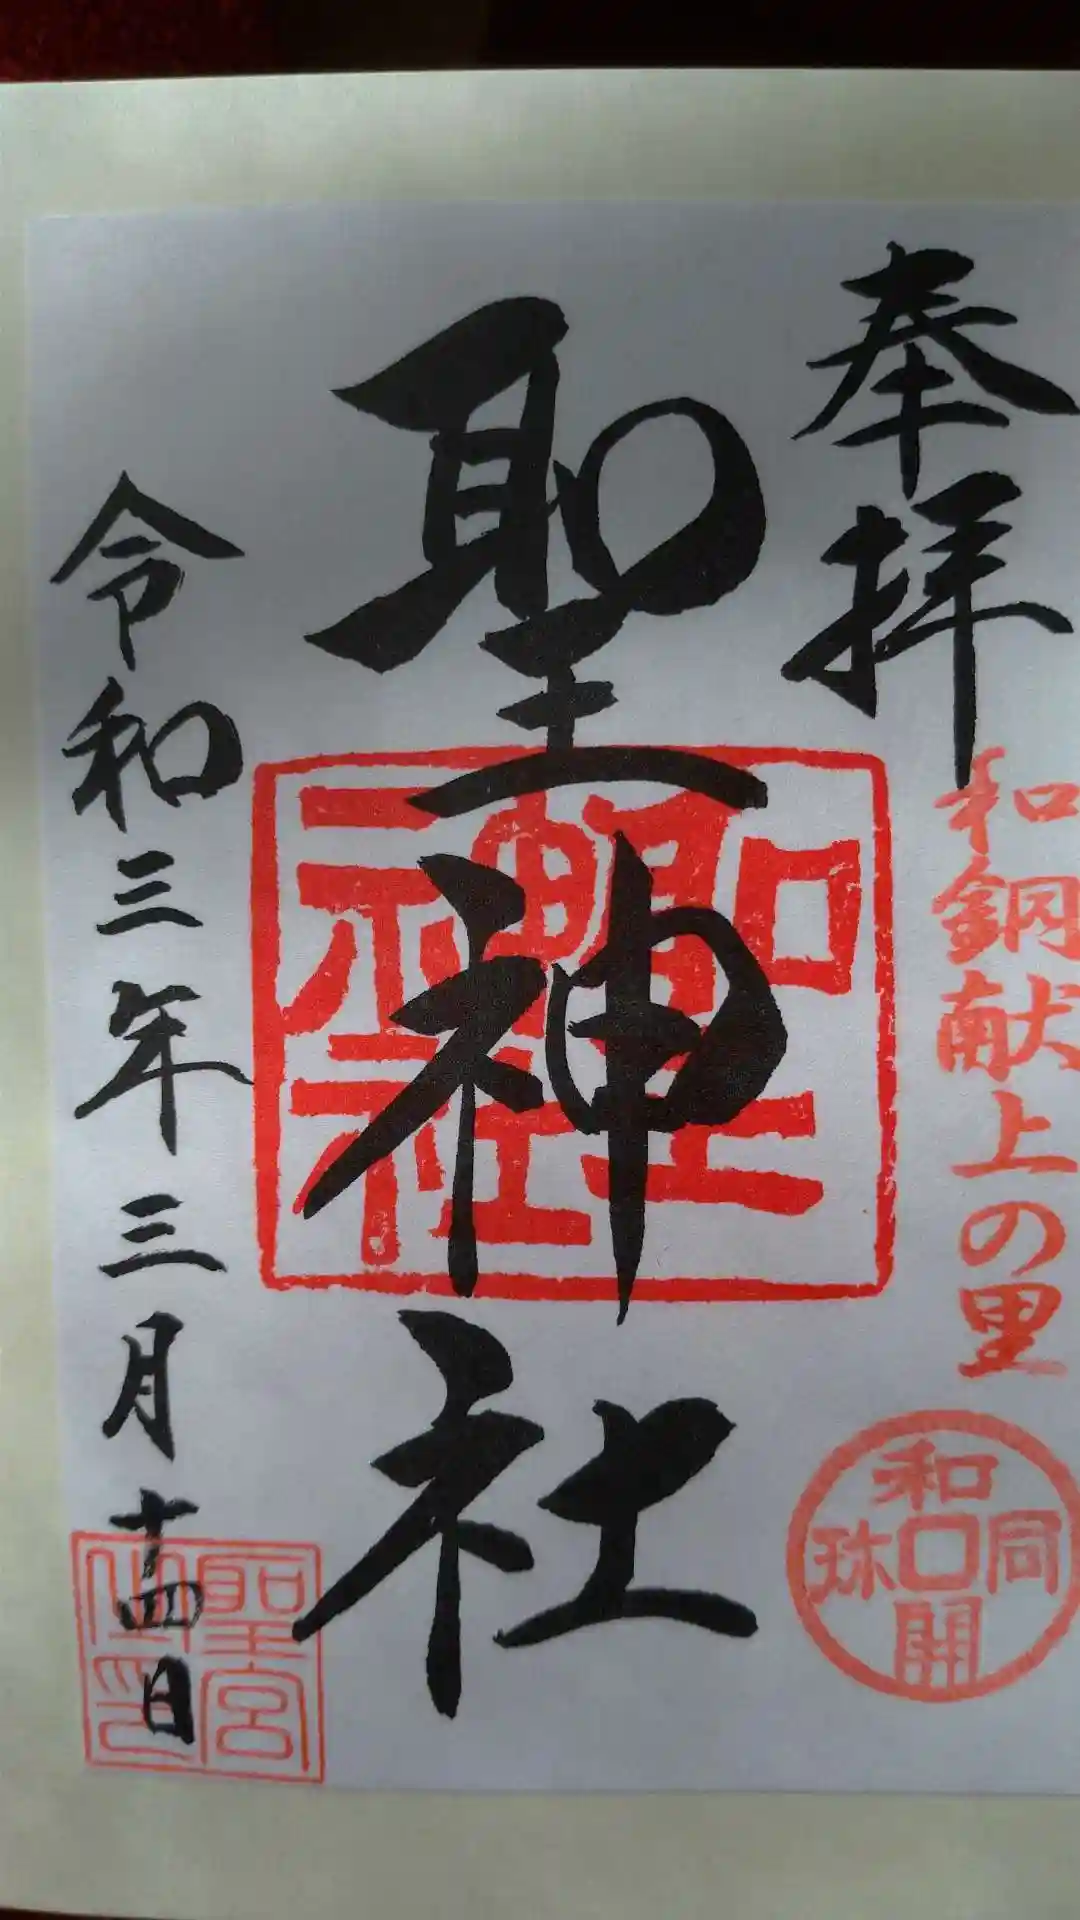 奉拝
和銅献上の里
和同開珎
聖神社
聖神社
令和三年三月十四日
聖宮之印